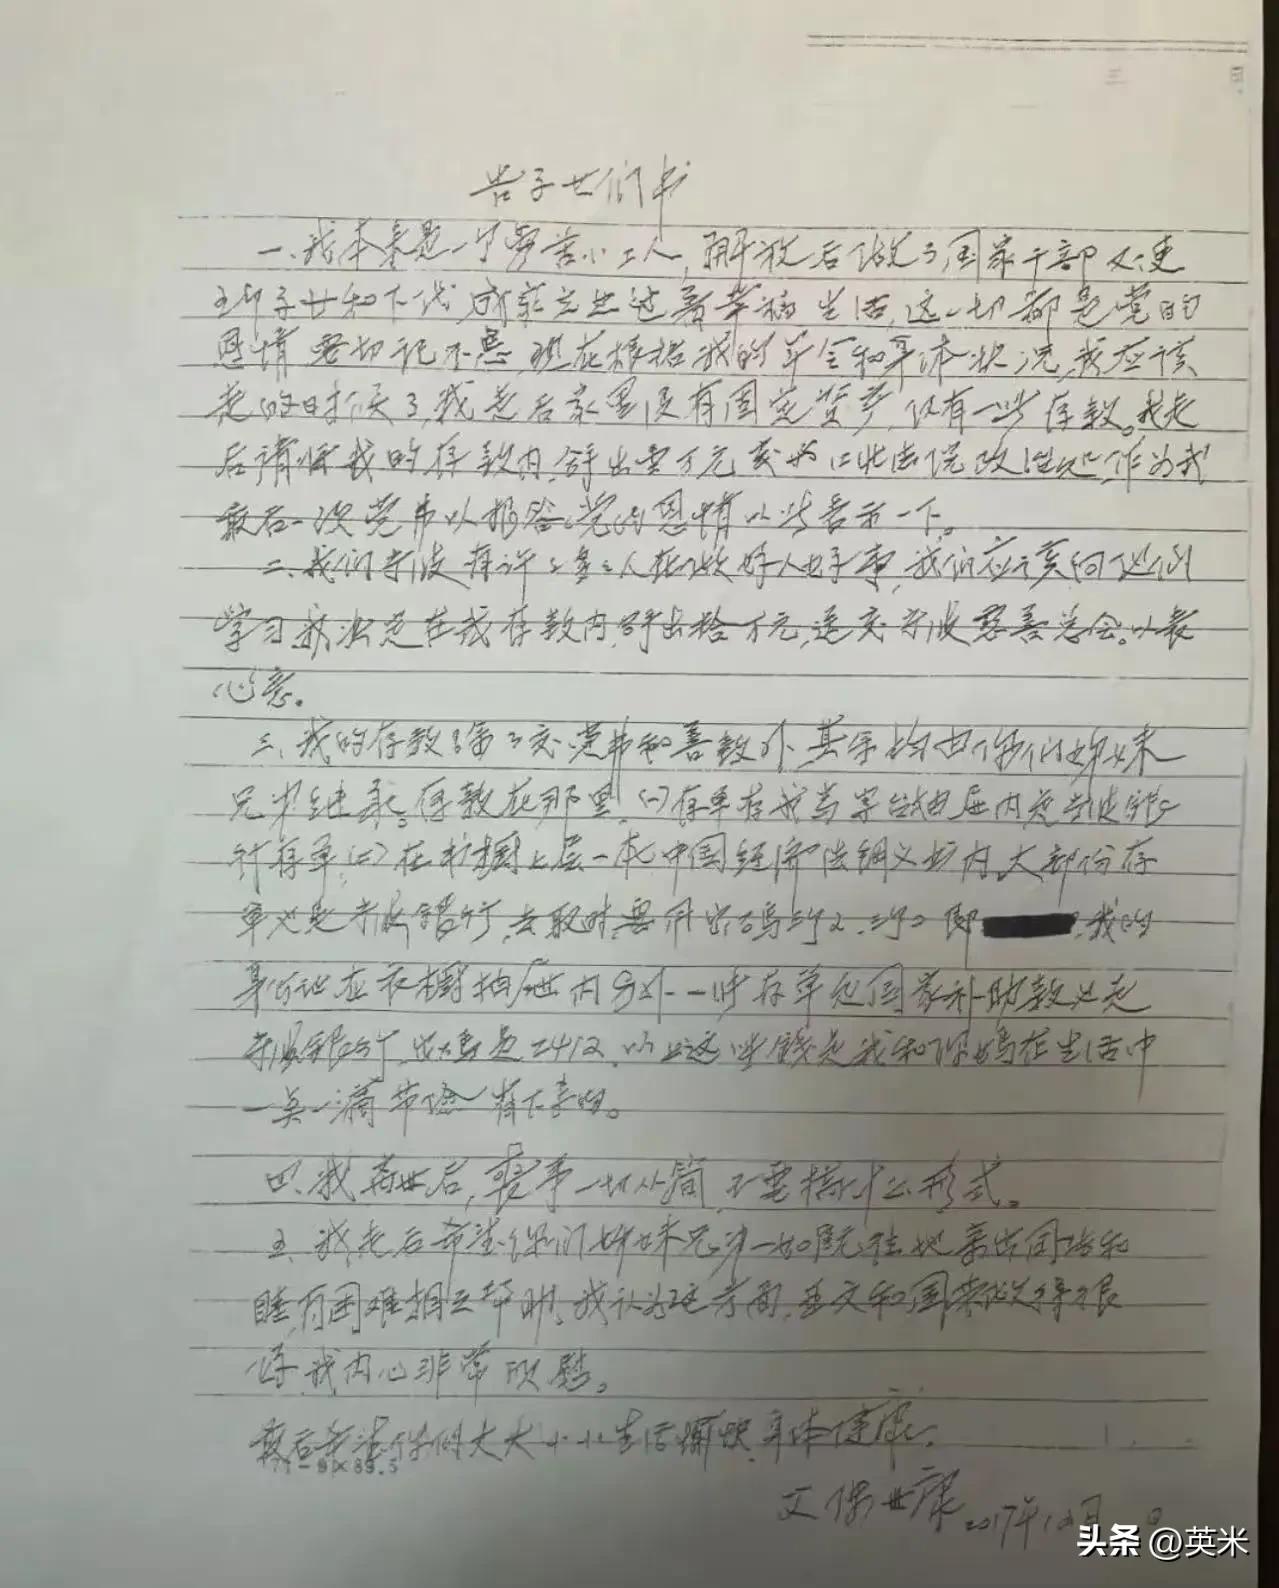 告子女们书
一、我本来是一个劳苦小工人，解放后做了国家干部又使
子女和下代成家立业过着幸福生活，这一切都是党的
恩情要切记不忘，现在根据我的年令和身体状况，我应该
走的时候了，我走后家里没有固定资产，仅有一些存款。我走
后请你我的存款内，拿出壹万元交为江北法院政治处，作为我
最后一次党费以报答党的恩情以此表示一下。
二、我们宁波有许多多人在做好人好事，我们应该向他们
学习，我决定在我存款内，拿出拾万元，送交宁波慈善总会。以表
心意。
三、我的存款除了交党费和善款外，其余均由你们姊妹
兄弟继承。存款在那里，(一)存单存我写字台抽屉内是宁波银
行存单，(二)在书橱上层一本中国经济法纲义书内，大部份存
单是宁波银行，去取时要用
身份证在衣橱抽屉内，另外一些存单是国家补助款是
宁波银行，号码是2412，以上这些钱是我和你妈在生活中
一点一滴节俭省下来的。
四、我离世后，丧事一切从简，不要搞什么形式。
五、我走后希望你们姊妹兄弟一如既往地亲密团结和
睦，有困难相互帮助，我认为这方面，亚文和国荣做得很
好，我内心非常欣慰。
最后希望你们大大小小生活愉快，身体健康。
71-9×89.5
2017年10月 日
头条 @英米